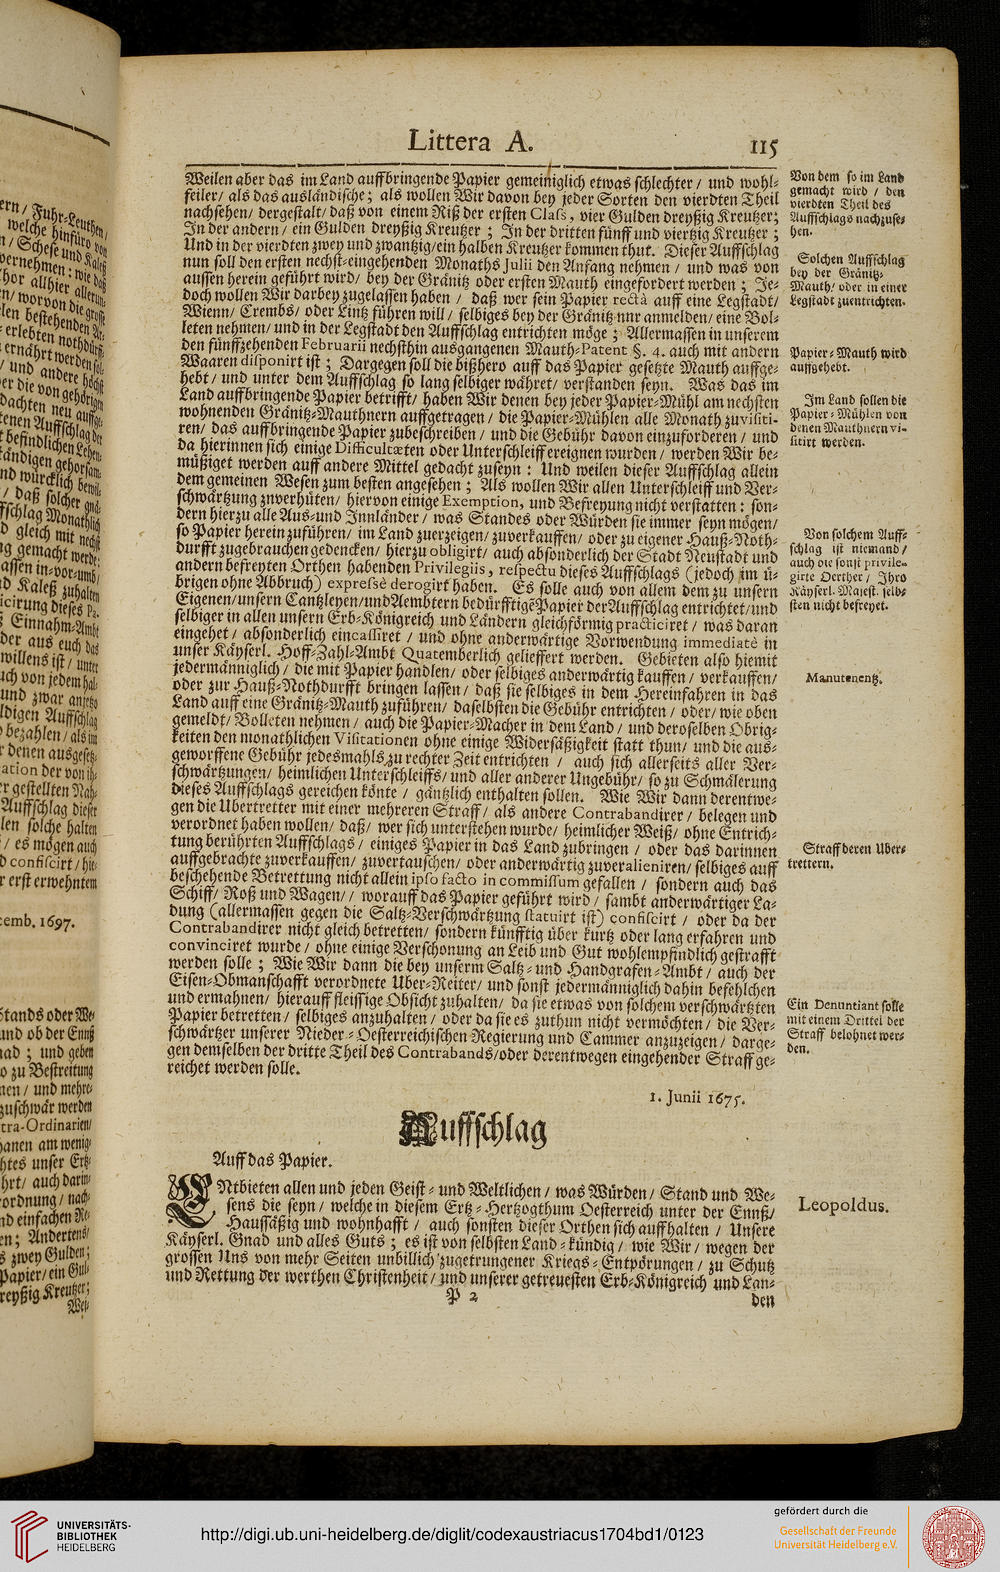 Littera A. 115
Weilen aber das im Land auffbringende Papier gemeiniglich etwas schlechter / und wohl-
feiler / als das ausländische; als wollen Wir davon bey jeder Sorten den vierdten Theil
nachsehen / dergestalt / daß von einem Riß der ersten Class, vier Gulden dreyßig Kreutzer;
In der andern / ein Gulden dreyßig Kreutzer ; In der dritten fünff und viertzig Kreutzer ;
Und in der vierdten zwey und zwantzig / ein halben Kreutzer kommen thut. Dieser Auffschlag
nun soll den ersten nechst-eingehenden Monaths Julii den Anfang nehmen / und was von
aussen herein geführt wird / bey der Gränitz oder ersten Mauth eingefordert werden ; Je-
doch wollen Wir darbey zugelassen haben / daß wer sein Papier rectà auff eine Legstadt /
Wienn / Crembs / oder Lintz führen will / selbiges bey der Gränitz nur anmelden / eine Bol-
leten nehmen / und in der Legstadt den Auffschlag entrichten möge ; Allermassen in unserem
den fünffzehenden Februarii nechsthin ausgangenen Mauth-Patent §. 4. auch mit andern
Waaren disponirt ist ; Dargegen soll die bißhero auff das Papier gesetzte Mauth auffge-
hebt / und unter dem Auffschlag so lang selbiger währet / verstanden seyn. Was das im
Land auffbringende Papier betrifft / haben Wir denen bey jeder Papier-Mühl am nechsten
wohnenden Gränitz-Mauthnern auffgetragen / die Papier-Mühlen alle Monath zu visiti-
ren / das auffbringende Papier zubeschreiben / und die Gebühr davon einzuforderen / und
da hierinnen sich einige Difficultæten oder Unterschleiff ereignen wurden / werden Wir be-
müßiget werden auff andere Mittel gedacht zuseyn : Und weilen dieser Auffschlag allein
dem gemeinen Wesen zum besten angesehen ; Als wollen Wir allen Unterschleiff und Ver-
schwärtzung zuverhüten / hiervon einige Exemption, und Befreyung nicht verstatten : son-
dern hierzu alle Aus-und Innländer / was Standes oder Würden sie immer seyn mögen /
so Papier herein zuführen / im Land zuerzeigen / zuverkauffen / oder zu eigener Hauß-Noth-
durfft zugebrauchen gedencken / hierzu obligirt / auch absonderlich der Stadt Neustadt und
andern befreyten Orthen habenden Privilegiis, respectu dieses Auffschlags (jedoch im ü-
brigen ohne Abbruch) expressè derogirt haben. Es solle auch von allem dem zu unsern
Eigenen / unsern Cantzleyen / und Aembtern bedürfftige Papier der Auffschlag entrichtet / und
selbiger in allen unsern Erb-Königreich und Ländern gleichförmig practiciret / was daran
eingehet / absonderlich eincassiret / und ohne anderwärtige Vorwendung immediatè in
unser Käyserl. Hoff-Zahl-Ambt Quatemberlich gelieffert werden. Gebieten also hiemit
jedermänniglich / die mit Papier handlen / oder selbiges anderwärtig kauffen / verkauffen /
oder zur Hauß-Nothdurfft bringen lassen / daß sie selbiges in dem Hereinfahren in das
Land auff eine Gränitz-Mauth zuführen / daselbsten die Gebühr entrichten / oder / wie oben
gemeldt / Bolleten nehmen / auch die Papier-Macher in dem Land / und deroselben Obrig-
keiten den monathlichen Visitationen ohne einige Widersäßigkeit statt thun / und die aus-
geworffene Gebühr jedesmahls zu rechter Zeit entrichten / auch sich allerseits aller Ver-
schwärtzungen / heimlichen Unterschleiffs / und aller anderer Ungebühr / so zu Schmälerung
dieses Auffschlags gereichen könte / gäntzlich enthalten sollen. Wie Wir dann derentwe-
gen die Ubertretter mit einer mehreren Straff / als andere Contrabandirer / belegen und
verordnet haben wollen / daß / wer sich unterstehen wurde / heimlicher Weiß / ohne Entrich-
tung berührten Auffschlags / einiges Papier in das Land zubringen / oder das darinnen
auffgebrachte zuverkauffen / zuvertauschen / oder anderwärtig zuveralieniren / selbiges auff
beschehende Betrettung nicht allein ipso facto in commissum gefallen / sondern auch das
Schiff / Roß und Wagen / / worauff das Papier geführt wird / sambt anderwärtiger La-
dung (allermassen gegen die Saltz-Verschwärtzung statuirt ist) confiscirt / oder da der
Contrabandirer nicht gleich betretten / sondern künfftig über kurtz oder lang erfahren und
convinciret wurde / ohne einige Verschonung an Leib und Gut wohlempfindlich gestrafft
werden solle ; Wie Wir dann die bey unserm Saltz- und Handgrafen-Ambt / auch der
Eisen-Obmanschafft verordnete Uber-Reiter / und sonst jedermänniglich dahin befehlchen
und ermahnen / hierauff fleissige Obsicht zuhalten / da sie etwas von solchem verschwärtzten
Papier betretten / selbiges anzuhalten / oder da sie es zuthun nicht vermöchten / die Ver-
schwärtzer unserer Nieder-Oesterreichischen Regierung und Cammer anzuzeigen / darge-
gen demselben der dritte Theil des Contrabands / oder derentwegen eingehender Straff ge-
reichet werden solle.
1. Junii 1675.
Auffschlag
Auff das Papier.
ENtbieten allen und jeden Geist- und Weltlichen / was Würden / Stand und We-
sens die seyn / welche in diesem Ertz-Hertzogthum Oesterreich unter der Ennß /
Haussäßig und wohnhafft / auch sonsten dieser Orthen sich auffhalten / Unsere
Käyserl. Gnad und alles Guts ; es ist von selbsten Land-kündig / wie Wir / wegen der
grossen Uns von mehr Seiten unbillich zugetrungener Kriegs-Entpörungen / zu Schutz
und Rettung der werthen Christenheit / und unserer getreuesten Erb-Königreich und Lan-
P 2 den
Von dem so im Land
gemacht wird / den
vierdten Theil des
Auffschlags nachzuse-
hen.
Solchen Auffschlag
bey der Gränitz-
Mauth / oder in einer
Legstadt zuentrichten.
Papier-Mauth wird
auffgehebt.
Im Land sollen die
Papier-Mühlen von
denen Mauthnern vi-
sitirt werden.
Von solchem Auff-
schlag ist niemand /
auch die sonst privile-
girte Oerther / Ihro
Käyserl. Majest. selb-
sten nicht befreyet.
Manutenentz.
Straff deren Uber-
trettern.
Ein Denuntiant solle
mit einem Drittel der
Straff belohnet wer-
den.
Leopoldus.
ern / Fuhr-Leuthen /
welche hinfüro von
n / Schese und Kaleß
vernehmen : wie daß
hor allhier allerun-
en / worvon die grosse
len bestehenden Ar-
erlebten nothdürff-
ernährt werden sol-
/ und andere höchst
er die von gehörigen
dachten neu auffge-
tenen Auffschlag der
t befindlichen Lehen-
tändigen gehorsam-
nd würcklich bewil-
/ daß solcher gnä-
ffschlag Monathlich
d gleich mit nechst
g gemacht werde :
assen in-vor-umb /
d Kaleß zuhalten
icirung dieses Pa-
Einnahm-Ambt
der aus euch das
willens ist / unter
uch von jedem hal-
und zwar anjetzo
ldigen Auffschlag
bezahlen / als im
denen ausgesetz-
ation der von ih-
r gestellten Nah-
Auffschlag dieser
len solche halten
/ es mögen auch
d confiscirt / hie-
r erst erwehntem
cemb. 1697.
Stands oder We-
und ob der Ennß
nad ; und geben
o zu Bestreitung
nen / und mehre-
zuschwär werden
tra-Ordinarien /
hanen am wenig-
htes unser Ertz-
hrt / auch darin-
ordnung / nach-
nd einfachen Re-
en ; Andertens /
s zwey Gulden ;
Papier / ein Gul-
reyßig Kreutzer ;
Wei-
UNIVERSITÄTS-
BIBLIOTHEK
HEIDELBERG
http://digi.ub.uni-heidelberg.de/diglit/codexaustriacus1704bd1/0123
gefördert durch die
Gesellschaft der Freunde
Universität Heidelberg e.V.